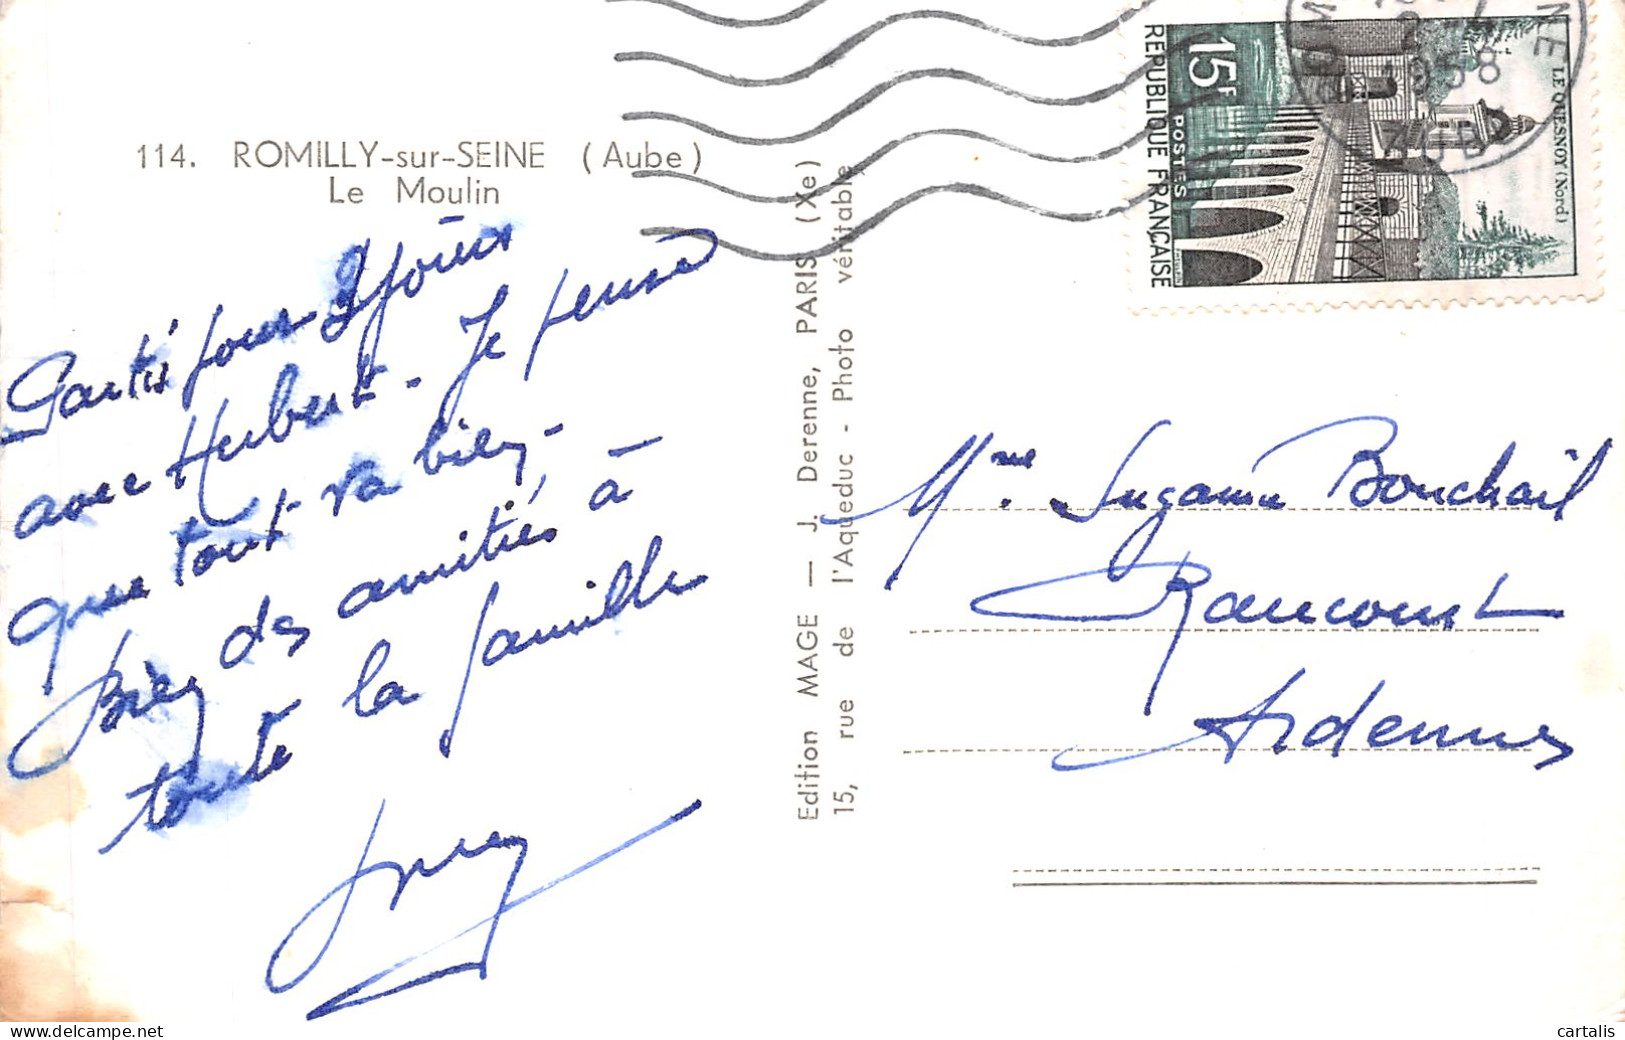 114. ROMILLY-sur-SEINE (Aube)
Le Moulin
Partis pour 2 jours
avec Hubert - Je pense
que tout va bien -
Bien des amitiés à
toute la famille
Edition MAGE — J. Derenne, PARIS (Xe)
15, rue de l'Aqueduc - Photo véritable
15F
POSTES
REPUBLIQUE FRANÇAISE
LE QUESNOY (Nord)
1958
AUBE
Mme Suzanne Bouchail
Raucourt
Ardennes
cartalis
https://www.delcampe.net